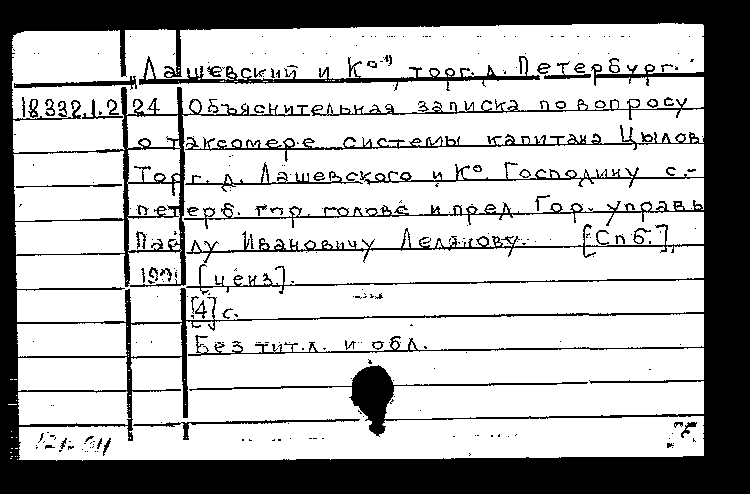 „Лашевский и К°", торг. д. Петербург.
18.332.1.224 Объяснительная записка по вопросу
о таксомере системы капитана Цылов
Торг. д. Лашевского и К°. Господину с.-
петерб. гор. голове и пред. Гор. управы
Павлу Ивановичу Лелянову. [Спб.],
1901 [ценз].
[4] с.
Без тит. л. и обл.